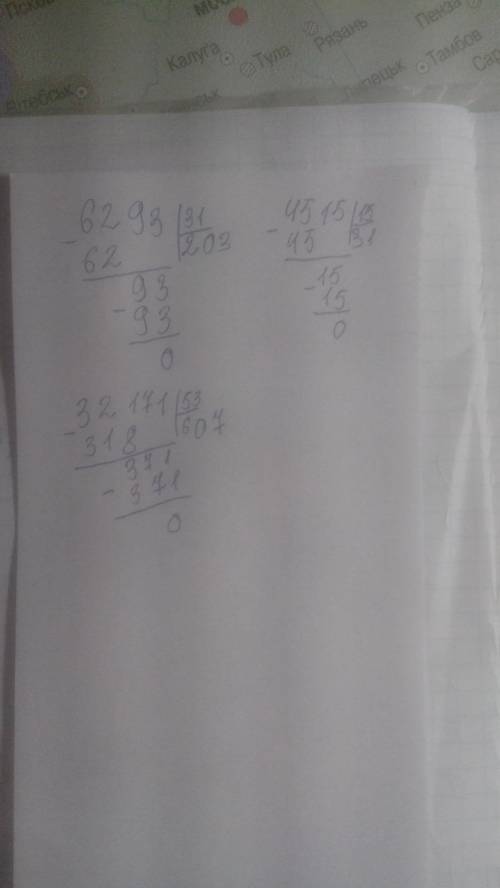 Пенза
Рязань
Тамбов
Калуга
Тула
Вітебськ
6293 31
62 203
93
93
0
4515 15
45 31
15
15
0
32171 53
318 607
371
371
0